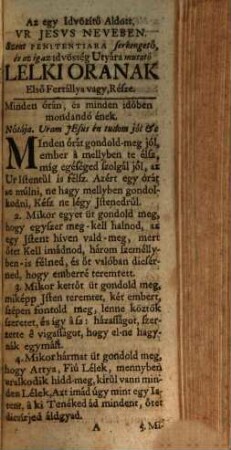 Az egy Idvözitö Aldott,
VR JESVS NEVEBEN.
Szent PENITENTIARA serkengetö,
és az igaz idvösség Utyára mutató
LELKI ORANAK
Elsö Fertállya vagy, Része.
Minden órán, és minden idöben
mondandó ének.
Nótája. Uram JEsus én tudom jól &c
MInden órát gondold-meg jól,
ember à mellyben te élsz,
míg egésséged szolgál jól, az
Ur Istentül is félsz. Azért egy órát
se múlni, ne hagy mellyben gondol-
kodni, Kész ne légy Jstenedrül.
2. Mikor egyet üt gondold meg,
hogy egyszer meg-kell halnod, az
egy Jstent híven vald-meg, mert
ötet Kell imádnod, három személly-
ben-is félned, és öt valóban dicsér-
ned, hogy emberré teremtett.
3. Mikor kettöt üt gondold meg,
miképp Jsten teremtet, két embert,
szépen fontold meg, lenne köztök
szeretet, és így à ſs: házasságot, szer-
zette à vigasságot, hogy el-ne hagy-
nák egymást.
4. Mikor hármat üt gondold meg,
hogy Attya, Fiú Lélek, mennyben
uralkodik hidd-meg, kirül vann min-
den Lélek, Azt imád úgy mint egy Is-
tent, à ki Tenéked ád mindent, ötet
dicsirjed áldgyad.
A 5. Mi-